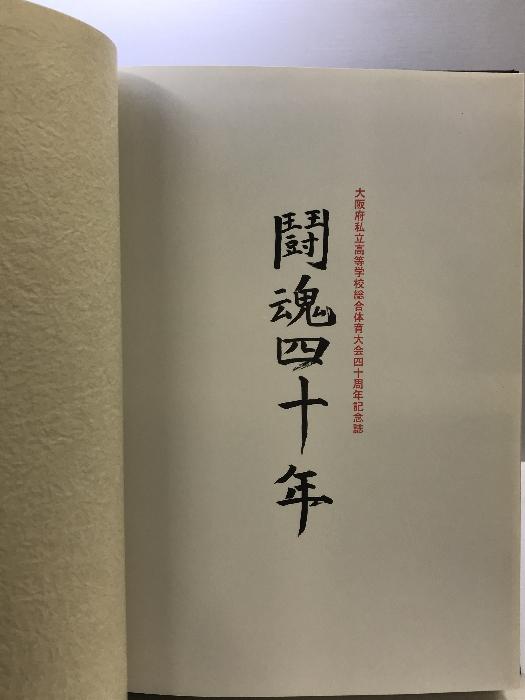 大阪府私立高等学校総合体育大会四十周年記念誌
闘魂四十年